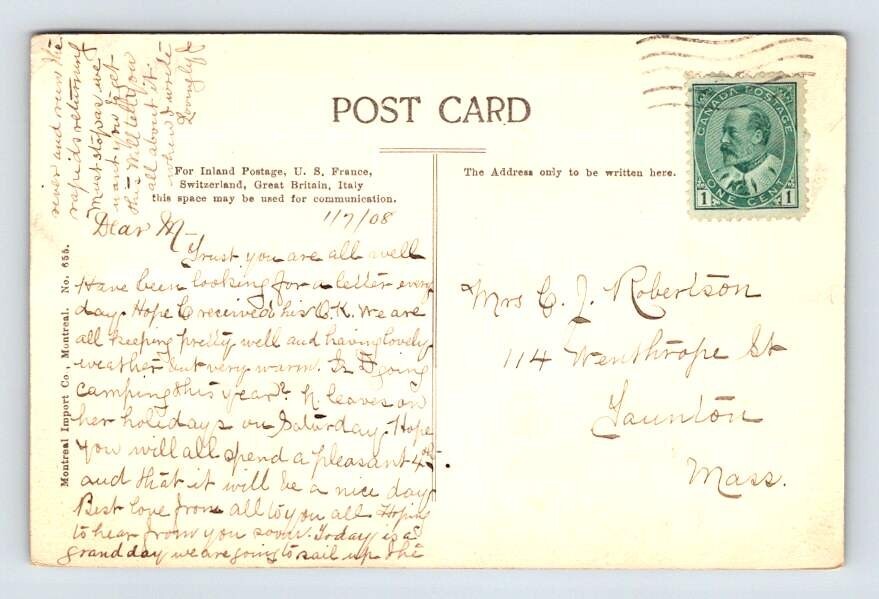 POST CARD
CANADA POSTAGE
ONE CENT
1 1
For Inland Postage, U. S. France,
Switzerland, Great Britain, Italy
this space may be used for communication.
The Address only to be written here.
1/7/08
Dear M—
Trust you are all well
Have been looking for a letter every
day. Hope C received his O.K. We are
all keeping pretty well and having lovely
weather, but very warm. Is F going
camping this year? K. leaves on
her holidays on Saturday. Hope
you will all spend a pleasant 4th
and that it will be a nice day
Best love from all to you all Hoping
to hear from you soon. Today is a
grand day we are going to sail up the
river and run the
rapids returning
Must stop as we
want now to get
this. Will tell you
all about it
when I write
Lovingly
Mrs C. J. Robertson
114 Wenthrope St
Taunton
Mass.
Montreal Import Co., Montreal. No. 655.